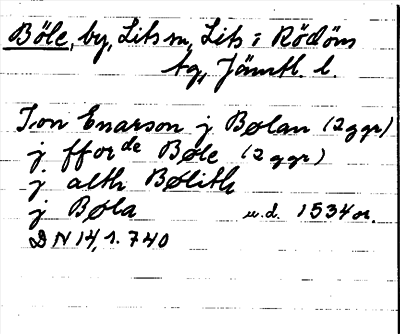 Böle, by, Lits sn, Lits o Rödöns
tg, Jämtl. l.
Jon Enarson j Bølan (2 ggr)
j fforde Bøle (2 ggr)
j alth Bølith
j Bøla u.d. 1534 or.
DN 14,1. 740